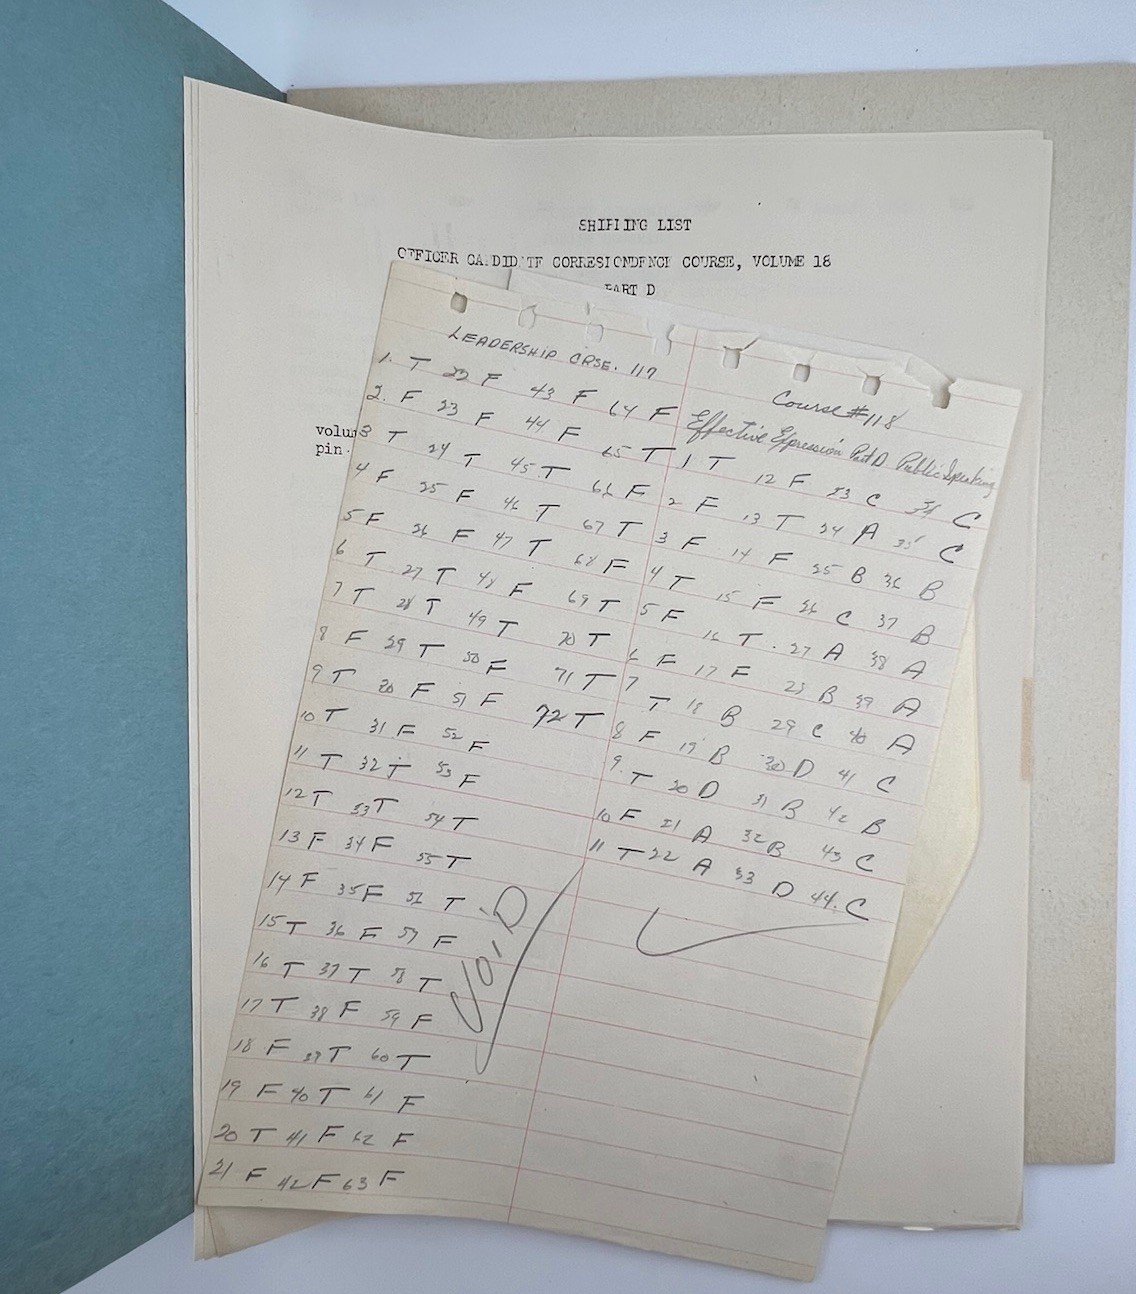 SHIPPING LIST
OFFICER CANDIDATE CORRESPONDENCE COURSE, VOLUME 18
PART D
pin
LEADERSHIP CRSE. 117
1. T 22 F 43 F 64 F
2. F 23 F 44 F 65 T
3 T 24 T 45 T 66 F
4 F 25 F 46 T 67 T
5 F 26 F 47 T 68 F
6 T 27 T 48 F 69 T
7 T 28 T 49 T 70 T
8 F 29 T 50 F 71 T
9 T 30 F 51 F 72 T
10 T 31 F 52 F
11 T 32 T 53 F
12 T 33 T 54 T
13 F 34 F 55 T
14 F 35 F 56 T
15 T 36 F 57 F
16 T 37 T 58 T
17 T 38 F 59 F
18 F 39 T 60 T
19 F 40 T 61 F
20 T 41 F 62 F
21 F 42 F 63 F
VOID
Course #118
Effective Expression Part D Public Speaking
1 T 12 F 23 C 34 C
2 F 13 T 24 A 35 C
3 F 14 F 25 B 36 B
4 T 15 F 26 C 37 B
5 F 16 T 27 A 38 A
6 F 17 F 28 B 39 A
7 T 18 B 29 C 40 A
8 F 19 B 30 D 41 C
9. T 20 D 31 B 42 B
10 F 21 A 32 B 43 C
11 T 22 A 33 D 44. C